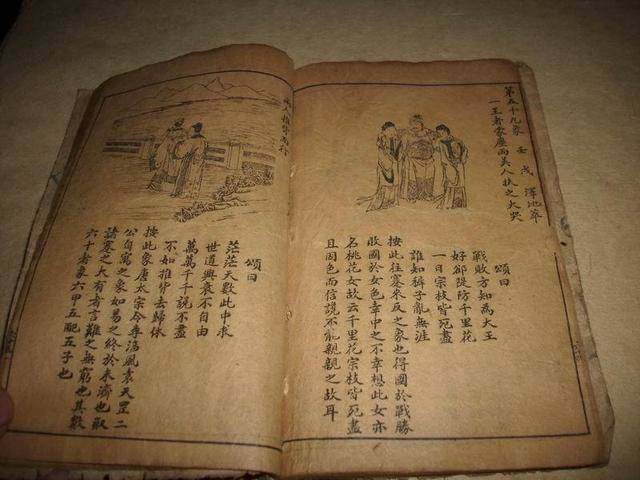 第五十九象 壬戌 澤地萃
一王者蒙塵兩美人扶之大哭
頌曰
戰敗方知為大王
好卻隄防千里花
一日宗枝皆死盡
誰知褲子亂無涯
按此往蹇來反之象也得國於戰勝
敗國於女色幸中之不幸想此女亦
名桃花女故云千里花宗枝皆死盡
且因色而信讒不能親親之故耳
人推背而行
頌曰
茫茫天數此中求
世道興衰不自由
萬萬千千說不盡
不如推背去歸休
按此象唐太宗令李淳風袁天罡二
公自寓之象如易之終於未濟也取
諸寒之大有者言難之無窮也其數
六十者象六甲五配五子也